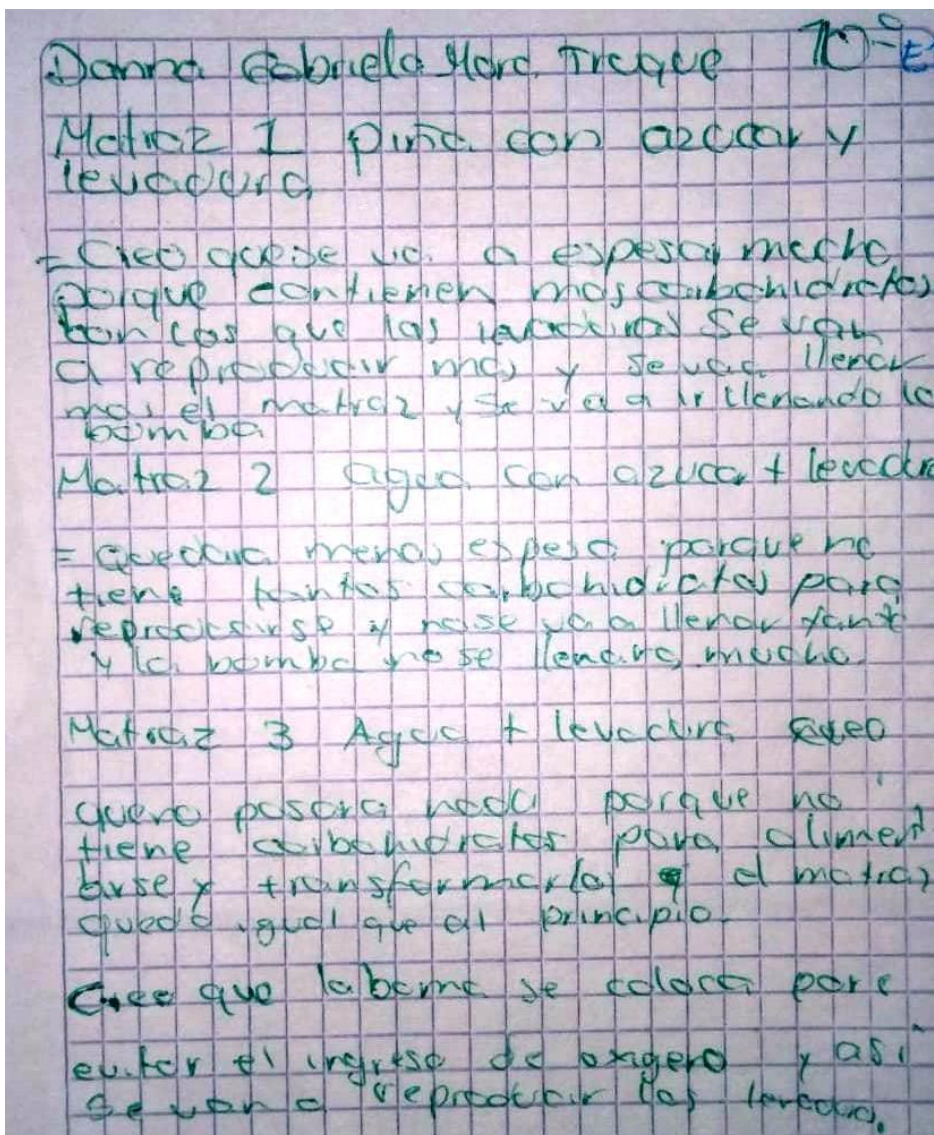 Donna Gabriela Mora Treque 10-E
Matraz 1 piña con azucar y
levadura
- Creo que se va a espesar mucho
porque contienen mas carbohidratos
con los que las levaduras se van
a reproducir mas y se va a llenar
mas el matraz y se va a ir llenando la
bomba
Matraz 2 agua con azucar + levadura
= Quedara menos espeso porque no
tiene tantos carbohidratos para
reproducirse y no se va a llenar tant
y la bomba no se llenara mucho.
Matraz 3 Agua + levadura creo
que no pasara nada porque no
tiene carbohidratos para aliment
arse y transformarlos y el matraz
queda igual que al principio.
Creo que la bomba se coloca para
evitar el ingreso de oxigero y asi
se van a reproducir las levadura.